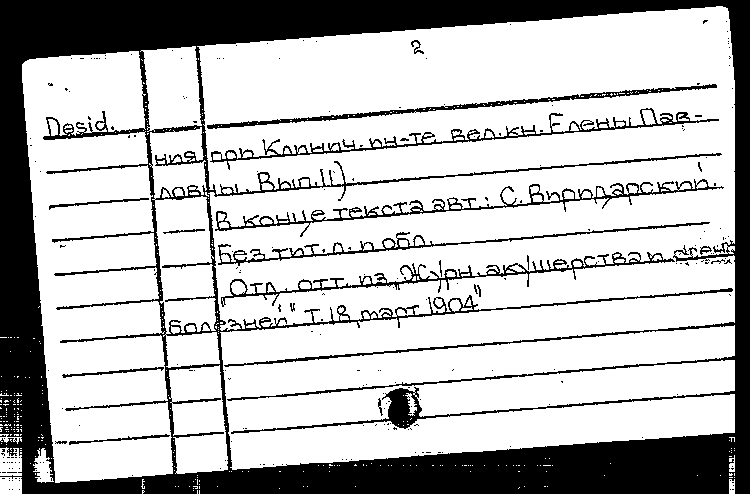 2
Desid.
ния при Клинич. ин-те вел. кн. Елены Пав-
ловны. Вып. II).
В конце текста авт.: С. Виридарский.
Без тит. л. и обл.
"Отд. отт. из „Журн. акушерства и женск
болезней" Т. 18, март 1904"